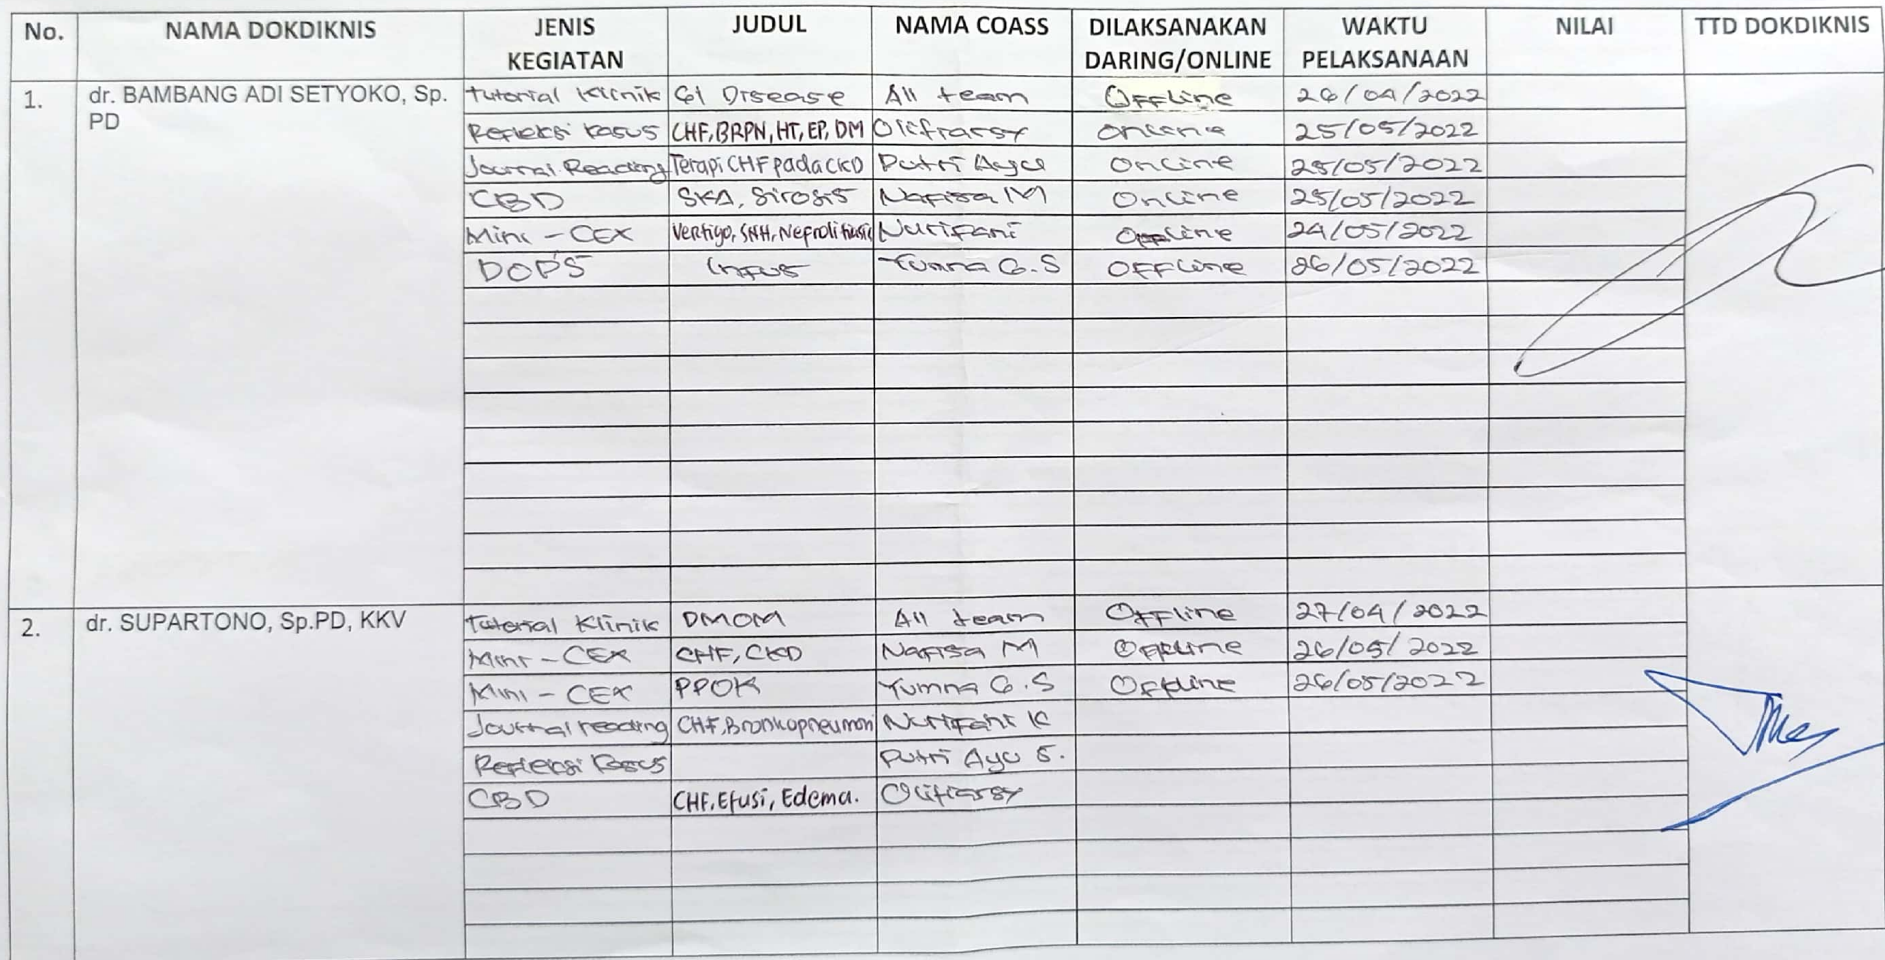 No. NAMA DOKDIKNIS JENIS KEGIATAN JUDUL NAMA COASS DILAKSANAKAN DARING/ONLINE WAKTU PELAKSANAAN NILAI TTD DOKDIKNIS
1. dr. BAMBANG ADI SETYOKO, Sp. PD
Tutorial Klinik GI Disease All team Offline 26/04/2022
Refleksi Kasus CHF, BRPN, HT, EP, DM Olifiarsy Online 25/05/2022
Journal Reading Terapi CHF pada CKD Putri Ayu Online 25/05/2022
CBD SKA, Sirosis Nafisa M Online 25/05/2022
Mini - CEX Vertigo, SNH, Nefrolitiasis Nurifani Offline 24/05/2022
DOPS Infus Yumna G.S Offline 26/05/2022
2. dr. SUPARTONO, Sp.PD, KKV
Tutorial Klinik DMOM All team Offline 27/04/2022
Mini - CEX CHF, CKD Nafisa M Offline 26/05/2022
Mini - CEX PPOK Yumna G.S Offline 26/05/2022
Journal reading CHF, Bronkopneumoni Nurifani K
Refleksi Kasus Putri Ayu S.
CBD CHF, Efusi, Edema. Olifiarsy